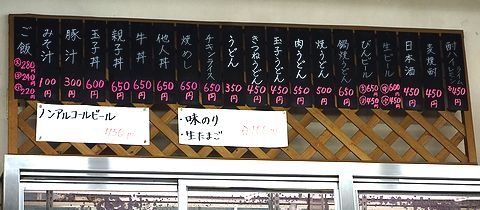 ご飯 大280円 中240円 小220円
みそ汁 100円
豚汁 300円
玉子丼 600円
親子丼 650円
牛丼 650円
他人丼 650円
焼めし 650円
チキンライス 650円
うどん 350円
きつねうどん 450円
玉子うどん 450円
肉うどん 550円
焼うどん 500円
鍋焼うどん 650円
びんビール 大650円 小450円
生ビール
日本酒 450円
麦焼酎 450円
酎ハイ 450円
ノンアルコールビール
450円
・味のり
・生たまご
各100円